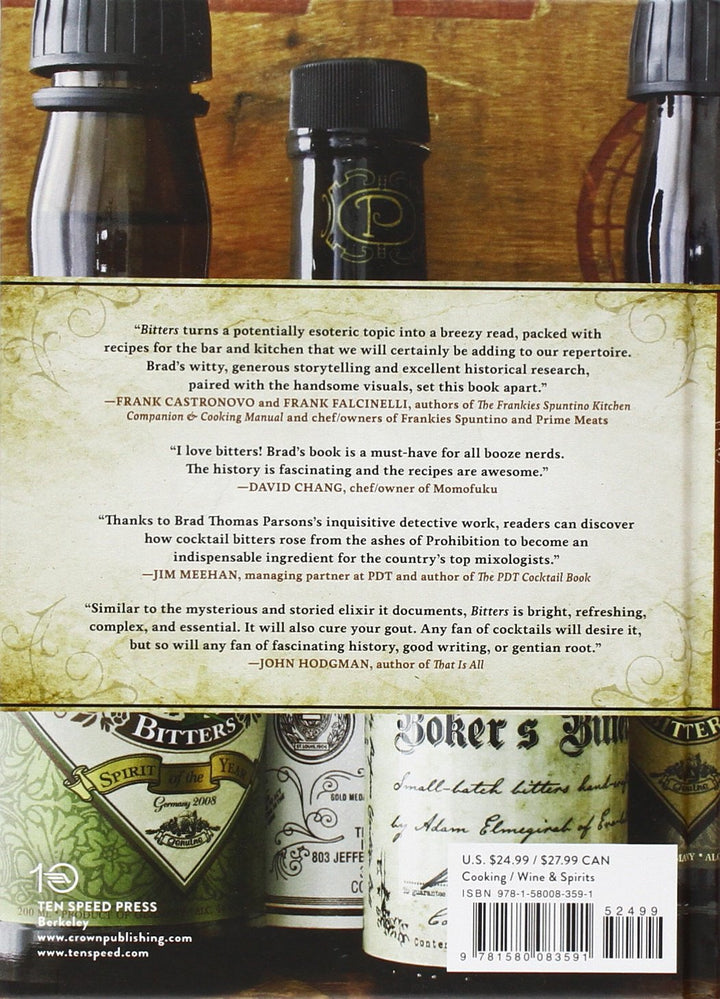 P
“Bitters turns a potentially esoteric topic into a breezy read, packed with
recipes for the bar and kitchen that we will certainly be adding to our repertoire.
Brad’s witty, generous storytelling and excellent historical research,
paired with the handsome visuals, set this book apart.”
—FRANK CASTRONOVO and FRANK FALCINELLI, authors of The Frankies Spuntino Kitchen
Companion & Cooking Manual and chef/owners of Frankies Spuntino and Prime Meats
“I love bitters! Brad’s book is a must-have for all booze nerds.
The history is fascinating and the recipes are awesome.”
—DAVID CHANG, chef/owner of Momofuku
“Thanks to Brad Thomas Parsons’s inquisitive detective work, readers can discover
how cocktail bitters rose from the ashes of Prohibition to become an
indispensable ingredient for the country’s top mixologists.”
—JIM MEEHAN, managing partner at PDT and author of The PDT Cocktail Book
“Similar to the mysterious and storied elixir it documents, Bitters is bright, refreshing,
complex, and essential. It will also cure your gout. Any fan of cocktails will desire it,
but so will any fan of fascinating history, good writing, or gentian root.”
—JOHN HODGMAN, author of That Is All
BITTERS
SPIRIT of the YEAR
Germany 2008
Genuine
ST. LOUIS, 1904
GOLD MED
803 JEFFE
Boker's Bitte
Small-batch bitters hand-
by Adam Elmegirab of
guarantee
Conten
ITTER
Genuine
200 ML • PRODUCT OF
10
TEN SPEED PRESS
Berkeley
www.crownpublishing.com
www.tenspeed.com
U.S. $24.99 / $27.99 CAN
Cooking / Wine & Spirits
ISBN 978-1-58008-359-1
52499
9 781580 083591